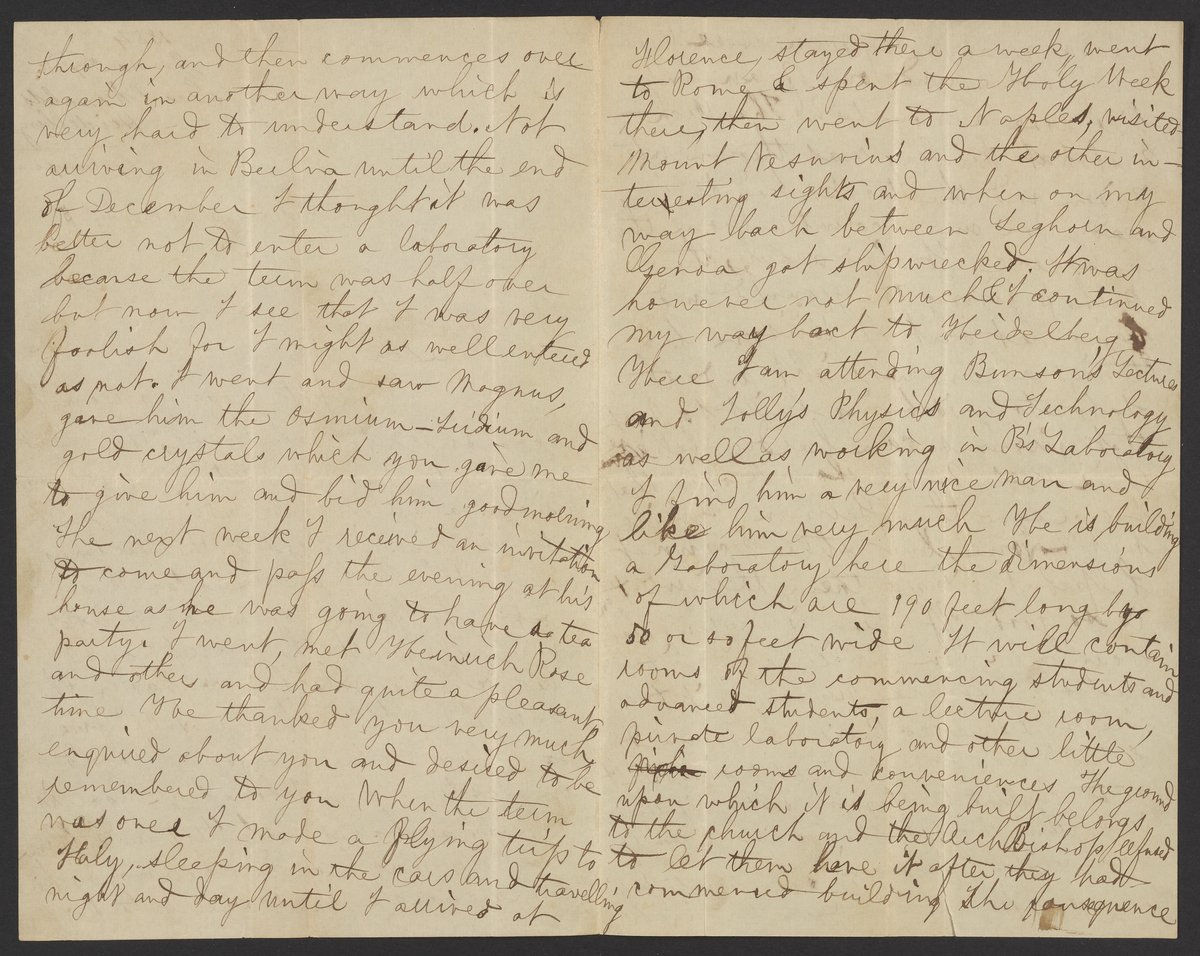 through, and then commences over
again in another way which is
very hard to understand. Not
arriving in Berlin until the end
of December I thought it was
better not to enter a laboratory
because the term was half over
but now I see that I was very
foolish for I might as well entered
as not. I went and saw Magnus,
gave him the Osmium-Iridium and
gold crystals which you gave me
to give him and bid him good morning
The next week I received an invitation
to come and pass the evening at his
house as he was going to have a tea
party. I went, met Heinrich Rose
and others and had quite a pleasant
time He thanked you very much,
enquired about you and desired to be
remembered to you When the term
was over I made a flying trip to
Italy, sleeping in the cars and travelling
night and day until I arrived at
Florence, stayed there a week, went
to Rome & spent the Holy Week
there, then went to Naples, visited
Mount Vesuvius and the other in-
teresting sights and when on my
way back between Leghorn and
Genoa got shipwrecked. It was
however not much & I continued
my way back to Heidelberg
Here I am attending Bunson's Lectures
and Jolly's Physics and Technology
as well as working in B's Laboratory
I find him a very nice man and
like him very much He is building
a Laboratory here the dimensions
of which are 190 feet long by
50 or 80 feet wide It will contain
rooms of the commencing students and
advanced students, a lecture room,
private laboratory and other little
rooms and conveniences The ground
upon which it is being built belongs
to the church and the Arch Bishop refused
to let them have it after they had
commenced building The consequence